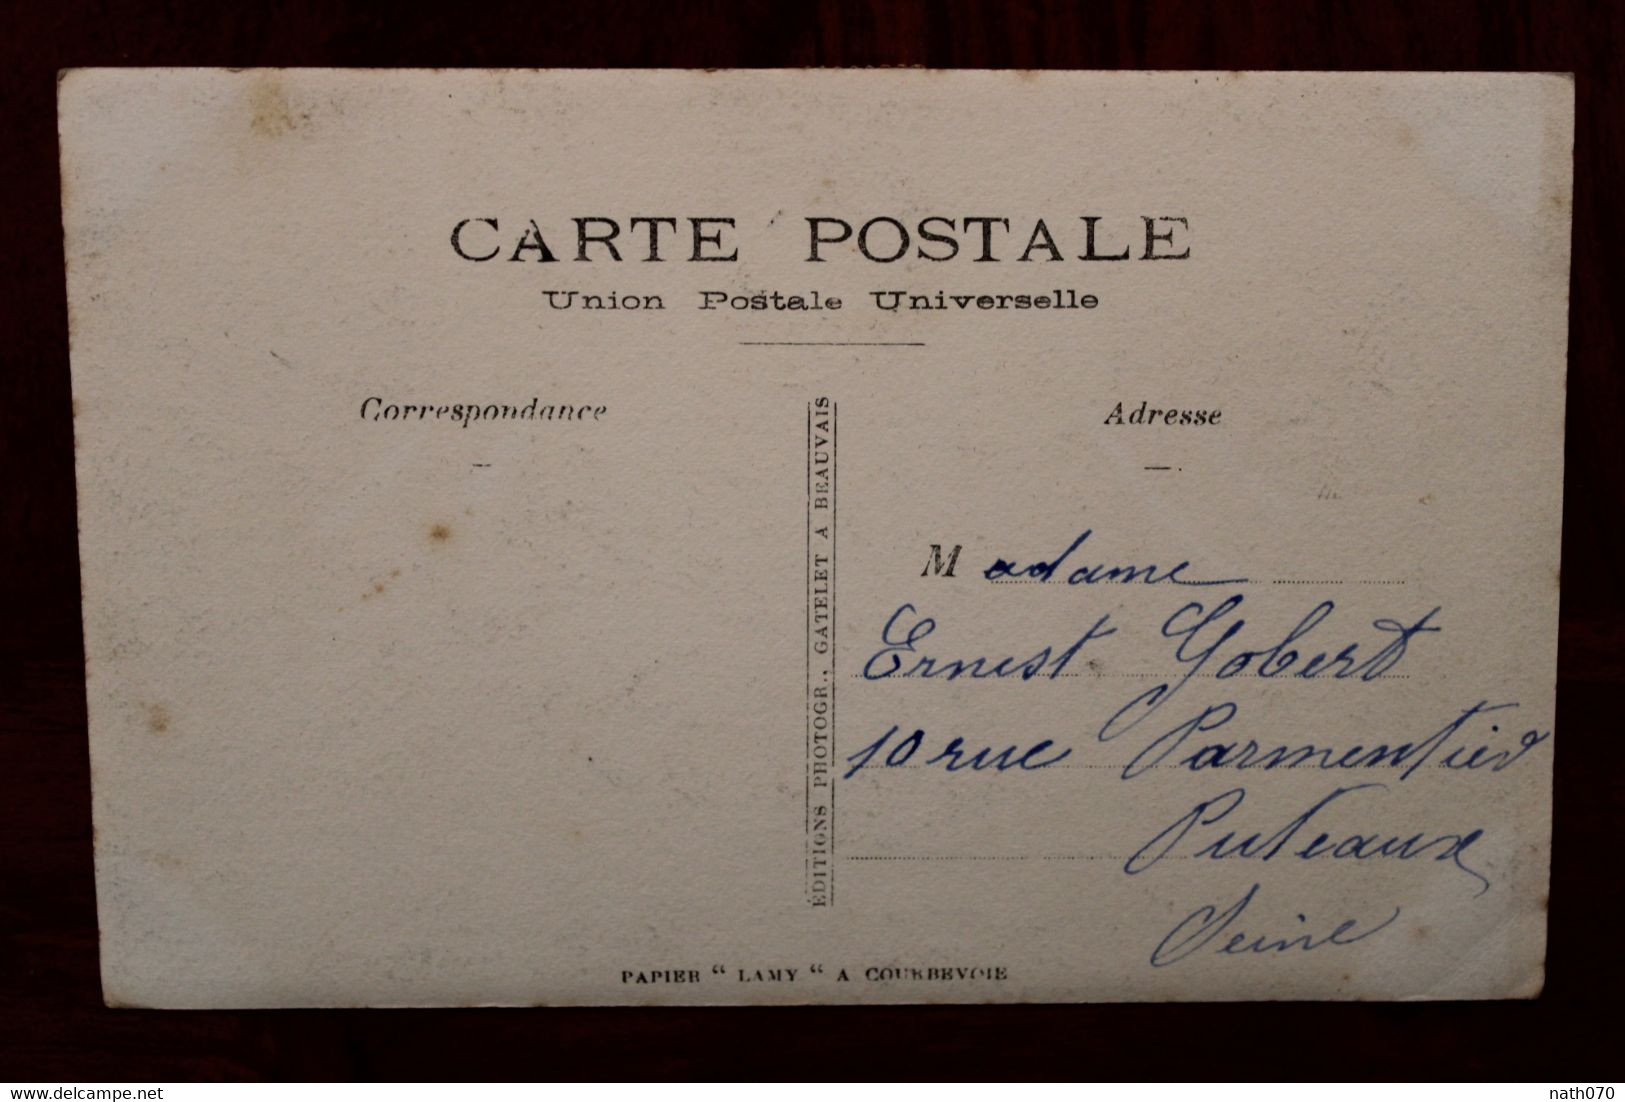 CARTE POSTALE
Union Postale Universelle
Correspondance
Adresse
ÉDITIONS PHOTOGR., GATELET A BEAUVAIS
Madame
Ernest Gobert
10 rue Parmentier
Puteaux
Seine
PAPIER “ LAMY “ A COURBEVOIE
www.delcampe.net
nath070